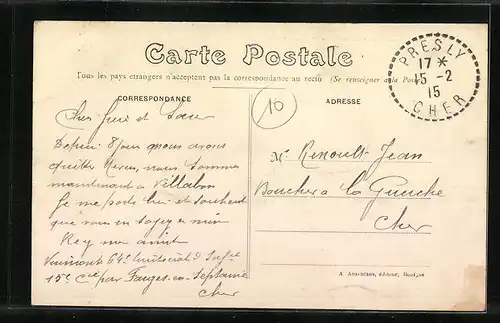 Carte Postale
Tous les pays étrangers n'acceptent pas la correspondance au recto (Se renseigner à la Poste)
CORRESPONDANCE
ADRESSE
PRESLY
17 *
15 - 2
15
CHER
10
Cher frère et Sœur
Depuis 8 jour nous avons
quitter nous sommes
maintenant a Villabon
Je me porte bien et souhait
que vous en soyez de même
amit
64e territorial
15e Cie par Farges-en-Septaine
Cher
Mr Renoult Jean
Boucher a la Guerche
Cher
éditeur, Bourges